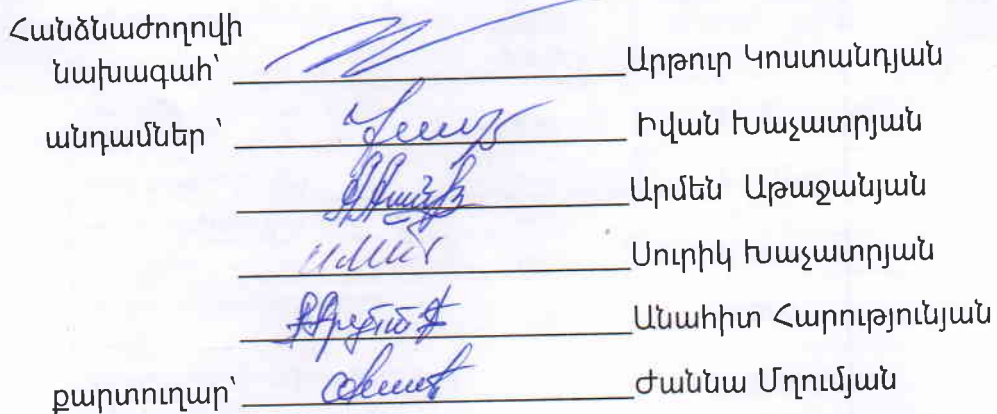 Հանձնաժողովի
նախագահ՝ Արթուր Կոստանդյան
անդամներ ՝ Իվան Խաչատրյան
Արմեն Աթաջանյան
Սուրիկ Խաչատրյան
Անահիտ Հարությունյան
քարտուղար՝ Ժաննա Մղումյան